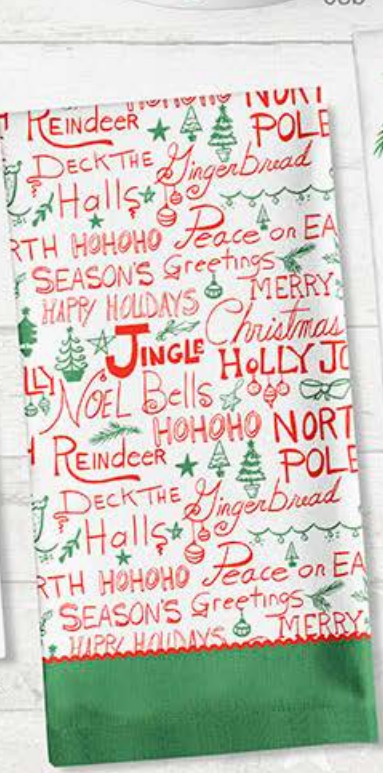 HOHOHO NORT
REINdeeR POLE
DECK THE Gingerbread
Halls
RTH HOHOHO Peace on EA
SEASON'S Greetings
HAPPY HOLIDAYS MERRY
Christmas
JINGLE HOLLY JO
LLY NOEL Bells
HOHOHO NORT
REINdeeR POLE
DECK THE Gingerbread
Halls
RTH HOHOHO Peace on EA
SEASON'S Greetings
HAPPY HOLIDAYS MERRY